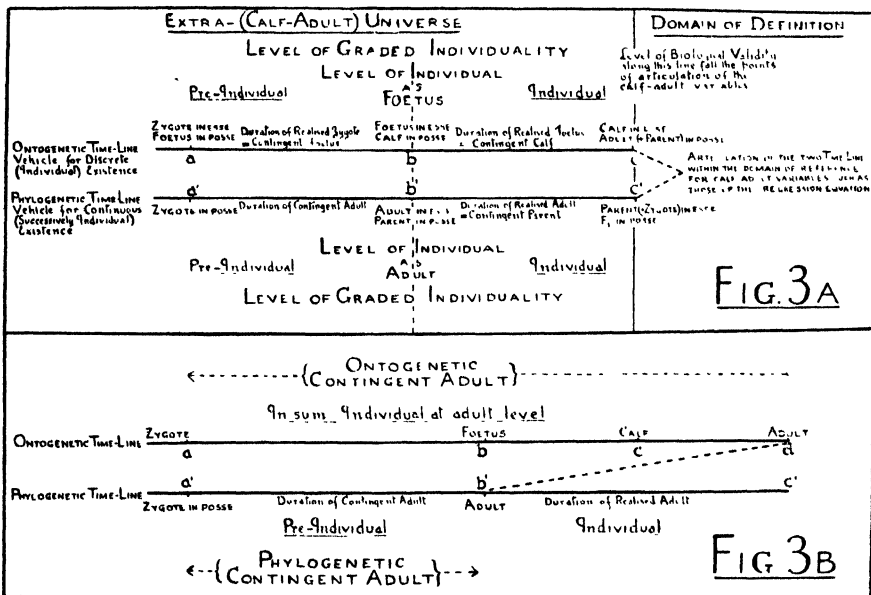 EXTRA-(CALF-ADULT) UNIVERSE
DOMAIN OF DEFINITION
LEVEL OF GRADED INDIVIDUALITY
LEVEL OF INDIVIDUAL
AS
FOETUS
Pre-Individual
Individual
Level of Biological Validity
along this line fall the points
of articulation of the
calf-adult variables
ONTOGENETIC TIME-LINE
VEHICLE FOR DISCRETE
(INDIVIDUAL) EXISTENCE
ZYGOTE IN ESSE
FOETUS IN POSSE
Duration of Realised Zygote
= Contingent Foetus
FOETUS IN ESSE
CALF IN POSSE
Duration of Realised Foetus
= Contingent Calf
CALF IN ESSE
ADULT (=PARENT) IN POSSE
a
b
c
ARTICULATION OF THE TWO TIME LINES
WITHIN THE DOMAIN OF REFERENCE
FOR CALF ADULT VARIABLES SUCH AS
THOSE OF THE REGRESSION EQUATION
a'
b'
c'
PHYLOGENETIC TIME-LINE
VEHICLE FOR CONTINUOUS
(SUCCESSIVELY INDIVIDUAL)
EXISTENCE
ZYGOTE IN POSSE
Duration of Contingent Adult
ADULT IN ESSE
PARENT IN POSSE
Duration of Realised Adult
= Contingent Parent
PARENT (=ZYGOTE) IN ESSE
F1 IN POSSE
LEVEL OF INDIVIDUAL
AS
ADULT
Pre-Individual
Individual
LEVEL OF GRADED INDIVIDUALITY
FIG. 3A
{ONTOGENETIC
CONTINGENT ADULT}
In sum Individual at adult level
ONTOGENETIC TIME-LINE
ZYGOTE
FOETUS
CALF
ADULT
a
b
c
d
a'
b'
c'
PHYLOGENETIC TIME-LINE
ZYGOTE IN POSSE
Duration of Contingent Adult
ADULT
Duration of Realised Adult
Pre-Individual
Individual
{PHYLOGENETIC
CONTINGENT ADULT}
FIG 3B